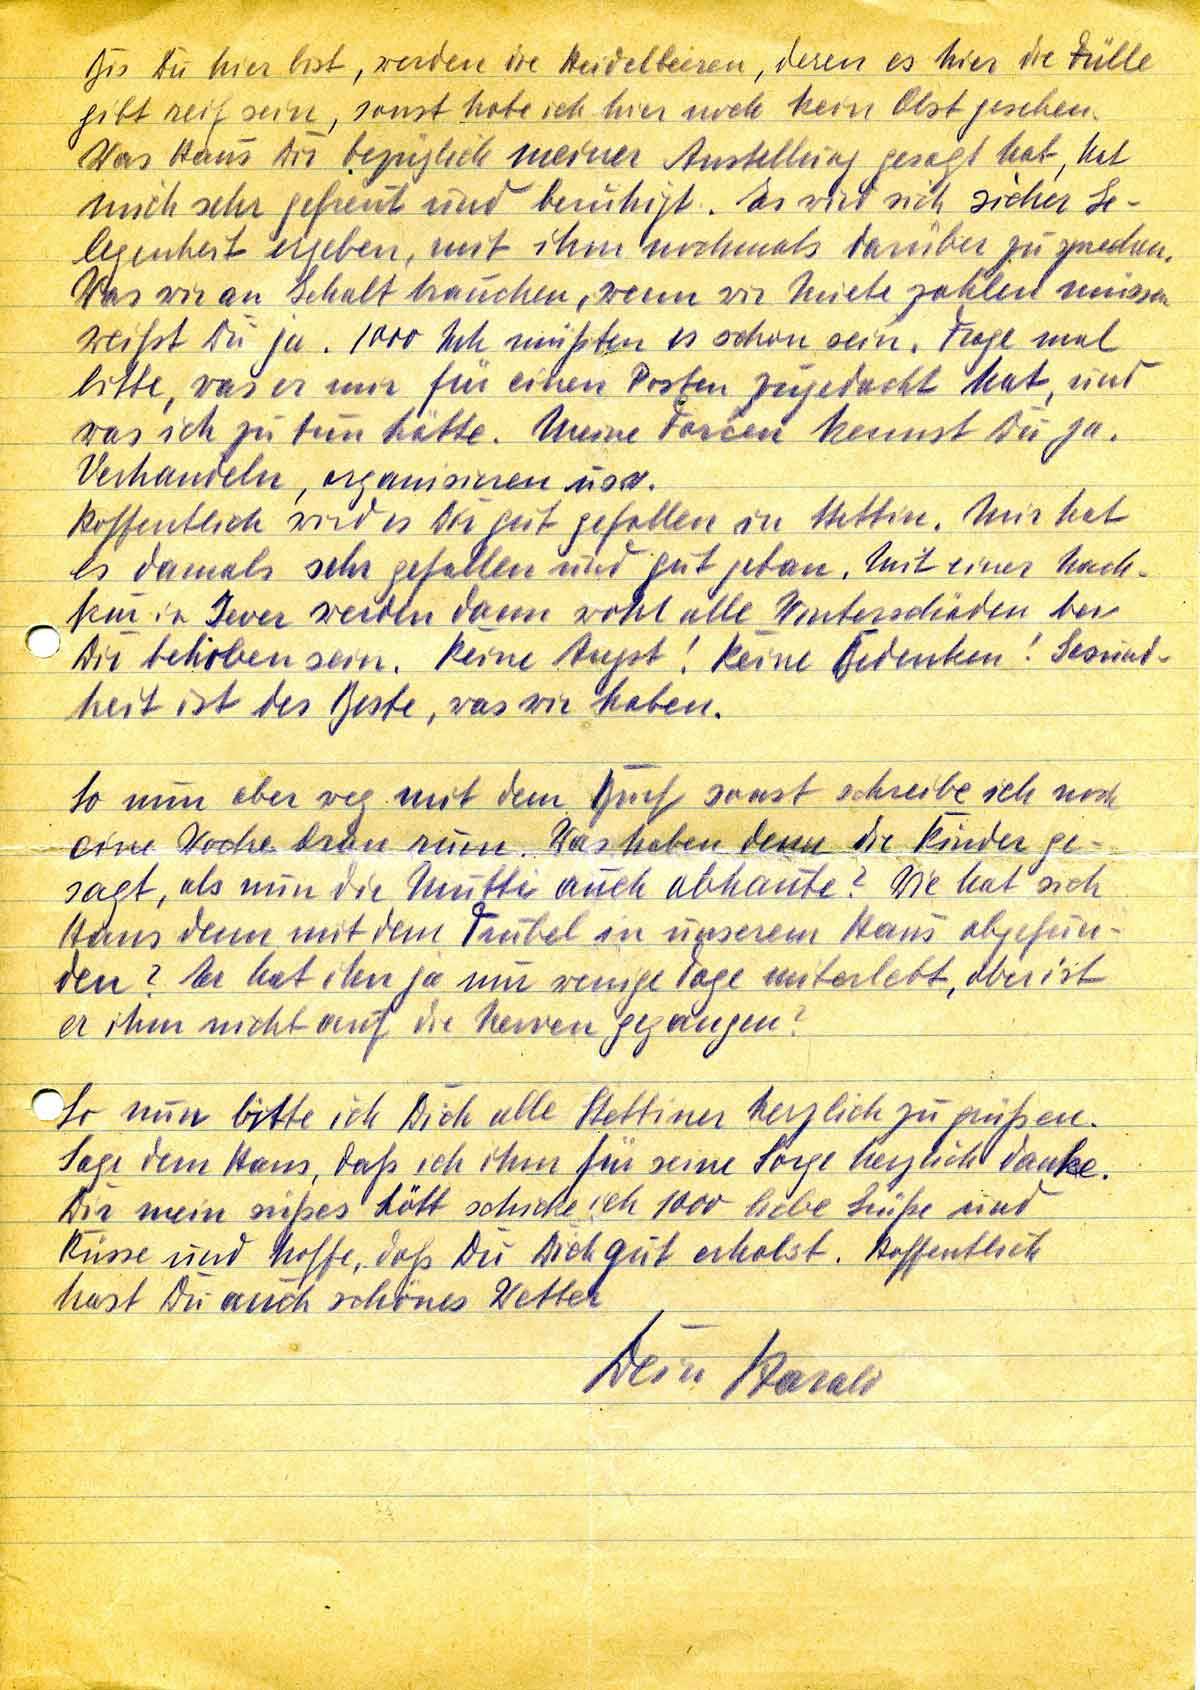 Bis Du hier bist, werden die Heidelbeeren, deren es hier die Fülle
gibt reif sein, sonst habe ich hier noch kein Obst gesehen.
Was Hans Dir bezüglich meiner Anstellung gesagt hat, hat
mich sehr gefreut und beruhigt. Es wird sich sicher Ge-
legenheit ergeben, mit ihm nochmals darüber zu sprechen.
Was wir an Gehalt brauchen, wenn wir Miete zahlen müssen
weißt Du ja. 1000 Mk müßten es schon sein. Frage mal
bitte, was er mir für einen Posten zugedacht hat, und
was ich zu tun hätte. Meine Forcen kennst Du ja.
Verhandeln, organisieren usw.
Hoffentlich wird es Dir gut gefallen in Stettin. Mir hat
es damals sehr gefallen und gut getan. Mit einer Nach-
kur in Jever werden dann wohl alle Winterschäden bei
Dir behoben sein. Keine Angst! Keine Bedenken! Gesund-
heit ist das Beste, was wir haben.
So nun aber weg mit dem Brief sonst schreibe ich noch
eine Woche dran rum. Was haben denn die Kinder ge-
sagt, als nun die Mutti auch abhaute? Wie hat sich
Hans denn mit dem Trubel in unserem Haus abgefun-
den? Er hat ihn ja nur wenige Tage miterlebt, aber ist
er ihm nicht auf die Nerven gegangen?
So nun bitte ich Dich alle Stettiner herzlich zu grüßen.
Sage dem Hans, daß ich ihm für seine Sorge herzlich danke.
Dir mein süßes Lött schicke ich 1000 liebe Grüße und
Küsse und hoffe, daß Du Dich gut erholst. Hoffentlich
hast Du auch schönes Wetter
Dein Harald